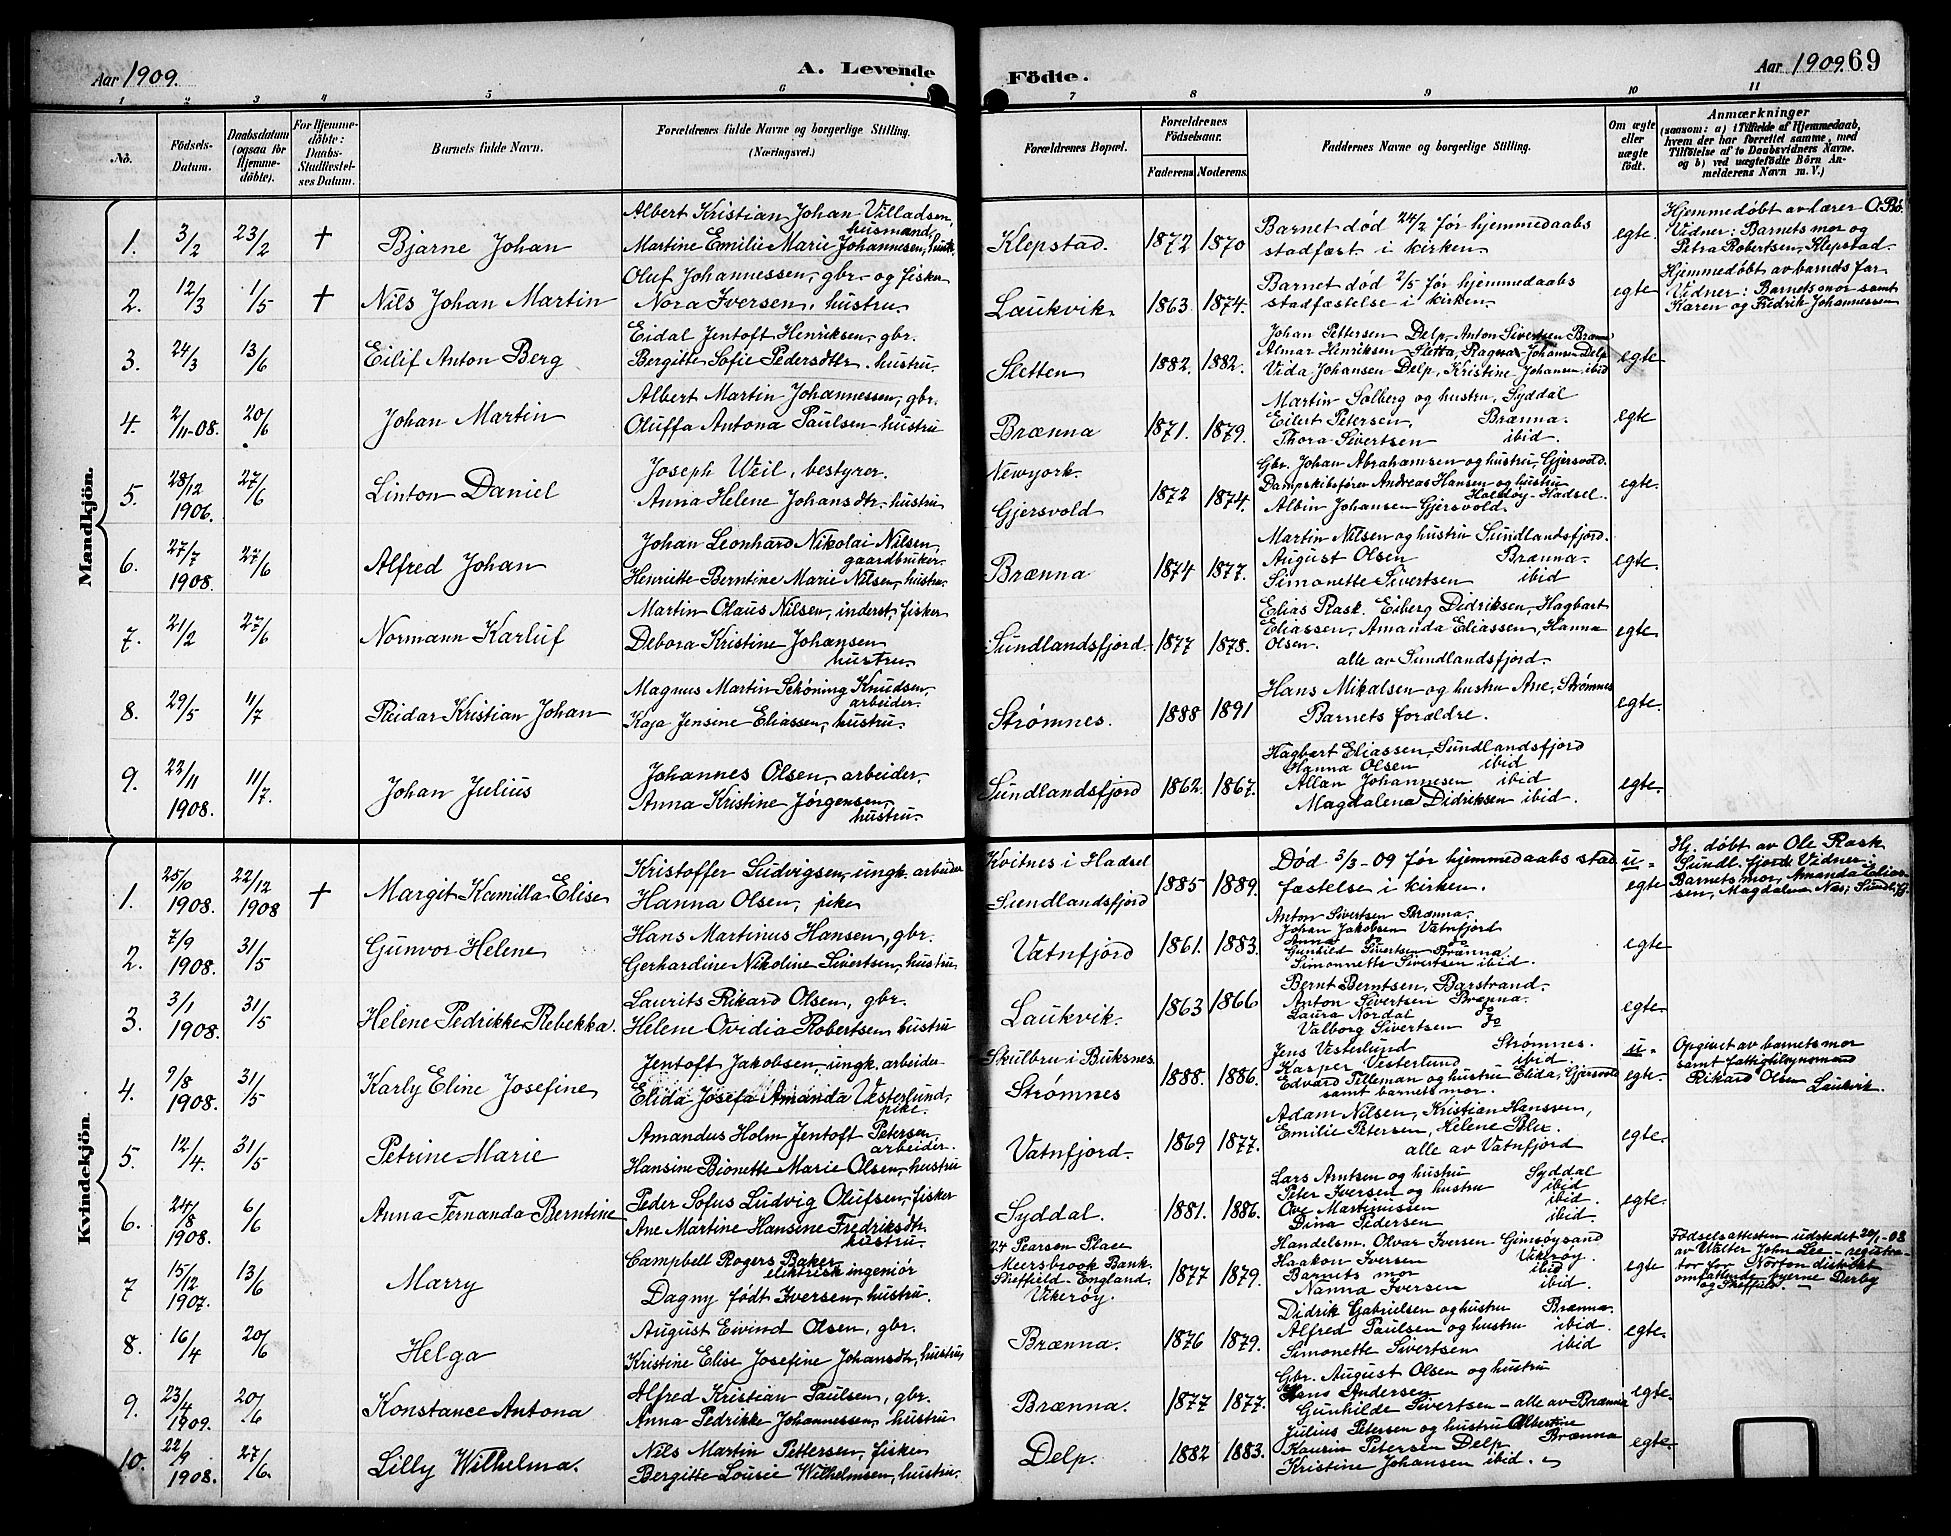 Aar 1909.
A. Levende Födte.
Aar 1909. 69
1 2 3 4 5 6 7 8 9 10 11
No.
Födsels-Datum.
Daabsdatum (ogsaa for Hjemmedöbte).
For Hjemmedöbte: Daabs-Stadfæstelses Datum.
Barnets fulde Navn.
Forældrenes fulde Navne og borgerlige Stilling. (Næringsvei.)
Forældrenes Bopæl.
Forældrenes Födselsaar.
Faderens. Moderens.
Faddernes Navne og borgerlige Stilling.
Om ægte eller uægte födt.
Anmærkninger
(saasom: a) i Tilfælde af Hjemmedaab, hvem der har forrettet samme, med Tilföielse af to Daabsvidners Navne, og b) ved uægtefödte Börn Anmelderens Navn m. V.)
Mandkjön.
1. 3/2 23/2 † Bjarne Johan
Albert Kristian Johan Villadsen, husmand,
Martine Emilie Marie Johannesen, hustr.
Klepstad. 1872 1870
Barnet död 24/2 før hjemmedaabs
stadfæst. i kirken.
egte.
Hjemmedøbt av lærer O. Bö.
Vidner: Barnets mor og
Petra Robertsen, Klepstad.
2. 12/3 1/5 † Nils Johan Martin
Oluf Johannessen, gbr. og fisker
Nora Iversen, hustru.
Laukvik. 1863 1874.
Barnet död 2/5 før hjemmedaabs
stadfæstelse i kirken.
egte
Hjemmedøbt av barnets far
Vidner: Barnets mor samt
Karen og Fredrik Johannessen
3. 24/3 13/6 Eilif Anton Berg
Eidal Jentoft Henriksen, gbr.
Bergitte Sofie Pedersdtr. hustru.
Sletten 1882. 1882.
Johan Pettersen Delp, Anton Sivertsen Brænna
Almar Henriksen Sletta, Ragna Johansen Delp
Vida Johansen Delp, Kristine Johansen, ibid
egte
4. 2/11-08. 20/6 Johan Martin
Albert Martin Johannessen, gbr.
Oluffa Antona Paulsen hustru
Brænna 1871. 1879.
Martin Solberg og hustru, Syddal
Eilert Petersen, Brænna.
Thora Sivertsen ibid.
egte
5. 28/12 1906. 27/6 Linton Daniel
Joseph Weil, bestyrer.
Anna Helene Johansdtr. hustru
Newyork.
Gjersvold 1872 1874.
Gbr. Johan Abrahamsen og hustru, Gjersvold.
Dampskibsfører Andreas Hansen og hustru
Holdöy-Hadsel.
Albin Johansen Gjersvold.
egte.
6. 27/7 1908. 27/6 Alfred Johan
Johan Leonhard Nikolai Nilsen, gaardbruker.
Henriette Berntine Marie Nilsen, hustru.
Brænna 1874 1877.
Martin Nilsen og hustru Sundlandsfjord.
August Olsen Brænna.
Simonette Sivertsen ibid
egte.
7. 21/2 27/6 Normann Karluf
Martin Olaus Nilsen, inderst, fisker
Debora Kristine Johansen hustru.
Sundlandsfjord. 1877 1878.
Elias Rask. Edberg Didriksen, Hagbart
Eliassen, Amanda Eliassen, Hanna
Olsen.
alle av Sundlandsfjord.
egte
8. 29/5 11/7 Reidar Kristian Johan
Magnus Martin Schöning Knudsen, arbeider.
Kaja Jensine Eliassen, hustru.
Strømnes. 1888 1891
Hans Mikalsen og hustru Ane, Strømnes
Barnets forældre.
egte.
9. 22/11 1908. 11/7. Johan Julius
Johannes Olsen, arbeider,
Anna Kristine Jørgensen, hustru.
Sundlandsfjord 1862. 1867.
Hagbert Eliassen, Sundlandsfjord
Hanna Olsen ibid
Allan Johannesen ibid
Magdalena Didriksen ibid.
egte.
Kvindekjön
1. 25/10 1908. 22/12 1908 † Margit Kamilla Elise
Kristoffer Ludvigsen, ungk. arbeider
Hanna Olsen, pike
Kvitnes i Hadsel
Sundlandsfjord 1885 1889.
Död 3/3-09 før hjemmedaabs stad
fæstelse i kirken.
u-
egte
Hj. döbt av Ole Rask
Sundl.fjord. Vidner:
Barnets mor, Amanda Elias-
sen, Magdalena Nils, Sundl.fj.
2. 7/9 1908. 31/5 Gunvor Helene
Hans Martinus Hansen, gbr.
Gerhardine Nikoline Sivertsen, hustru.
Vatnfjord 1861. 1883.
Anton Sivertsen Brænna.
Johan Jakobsen Vatnfjord
Anna do do
Gunhild Sivertsen Brænna.
Simonnette Sivertsen ibid.
egte
3. 3/1 1908. 31/5 Helene Pedrikke Rebekka.
Laurits Rikard Olsen, gbr.
Helene Ovidia Robertsen, hustru
Laukvik. 1863 1866
Bernt Berntsen, Barstrand.
Anton Sivertsen Brænna.
Laura Nordal do
Valborg Sivertsen do
egte.
4. 9/8 1908. 31/5 Karly Eline Josefine
Jentoft Jakobsen, ungk. arbeider
Elida Josefa Amanda Vesterlund, pike.
Skulbru i Buksnes.
Strømnes 1888. 1886.
Jens Vesterlund Strømnes.
Kasper Vesterlund ibid.
Edvard Tilleman og hustru Elida, Gjersvold
samt barnets mor.
u-
egte.
Opgivet av barnets mor
samt fattigtilsynsmand
Rikard Olsen Laukvik.
5. 12/4. 31/5 Petrine Marie
Amandus Holm Jentoft Petersen, arbeider.
Hansine Bionette Marie Olsen, hustru
Vatnfjord. 1869 1877.
Adam Nilsen, Kristian Hanssen,
Emilie Petersen, Helene
alle av Vatnfjord
egte.
6. 24/8 1908. 6/6 Anna Fernanda Berntine
Peder Sofus Ludvig Olufsen, fisker
Ane Martine Hansine Fredriksdtr. hustru.
Syddal. 1881. 1886.
Lars Arntsen og hustru Syddal
Peter Iversen og hustru ibid
Ove Martinussen ibid.
Dina Pedersen ibid.
egte.
7 15/12 1907. 13/6 Marry
Campbell Rogers Baker, elektrisk ingeniör
Dagny födt Iversen, hustru.
24 Pearson Place
Meersbrook Bank.
Sheffield-England.
Vikerøy. 1877 1879.
Handelsm. Olvar Iversen Gimsöysand
Haakon Iversen Vikeröy
Barnets mor ibid
Nanna Iversen ibid.
egte
Fødselsattesten utstedt 20/1-08
av Walter John Lee-registra-
tor for Norton distrikt
omfattende byerne Derby
og Sheffield.
8. 16/4 20/6 Helga
August Eivind Olsen, gbr.
Kristine Elise Josefine Johansdtr, hustru,
Brænna. 1876 1879.
Didrik Gabrielsen og hustru Brænna.
Alfred Paulsen og hustru ibid.
Simonette Sivertsen ibid
egte.
9. 23/4 1909. 20/6 Konstance Antona
Alfred Kristian Paulsen, gbr.
Anna Pedrikke Johannessen, hustru
Brænna. 1877 1877.
Gbr. August Olsen og hustru
Hans Andersen
Gunhilde Sivertsen - alle av Brænna
egte.
10. 22/9 1908. 27/6. Lilly Wilhelma.
Nils Martin Pettersen, fisker
Bergitte Lousie Wilhelmsen, hustru.
Delp. 1882 1883.
Julius Petersen og hustru Albertine Brænna
Kaurin Petersen Delp
Kristine Johansen ibid.
egte.